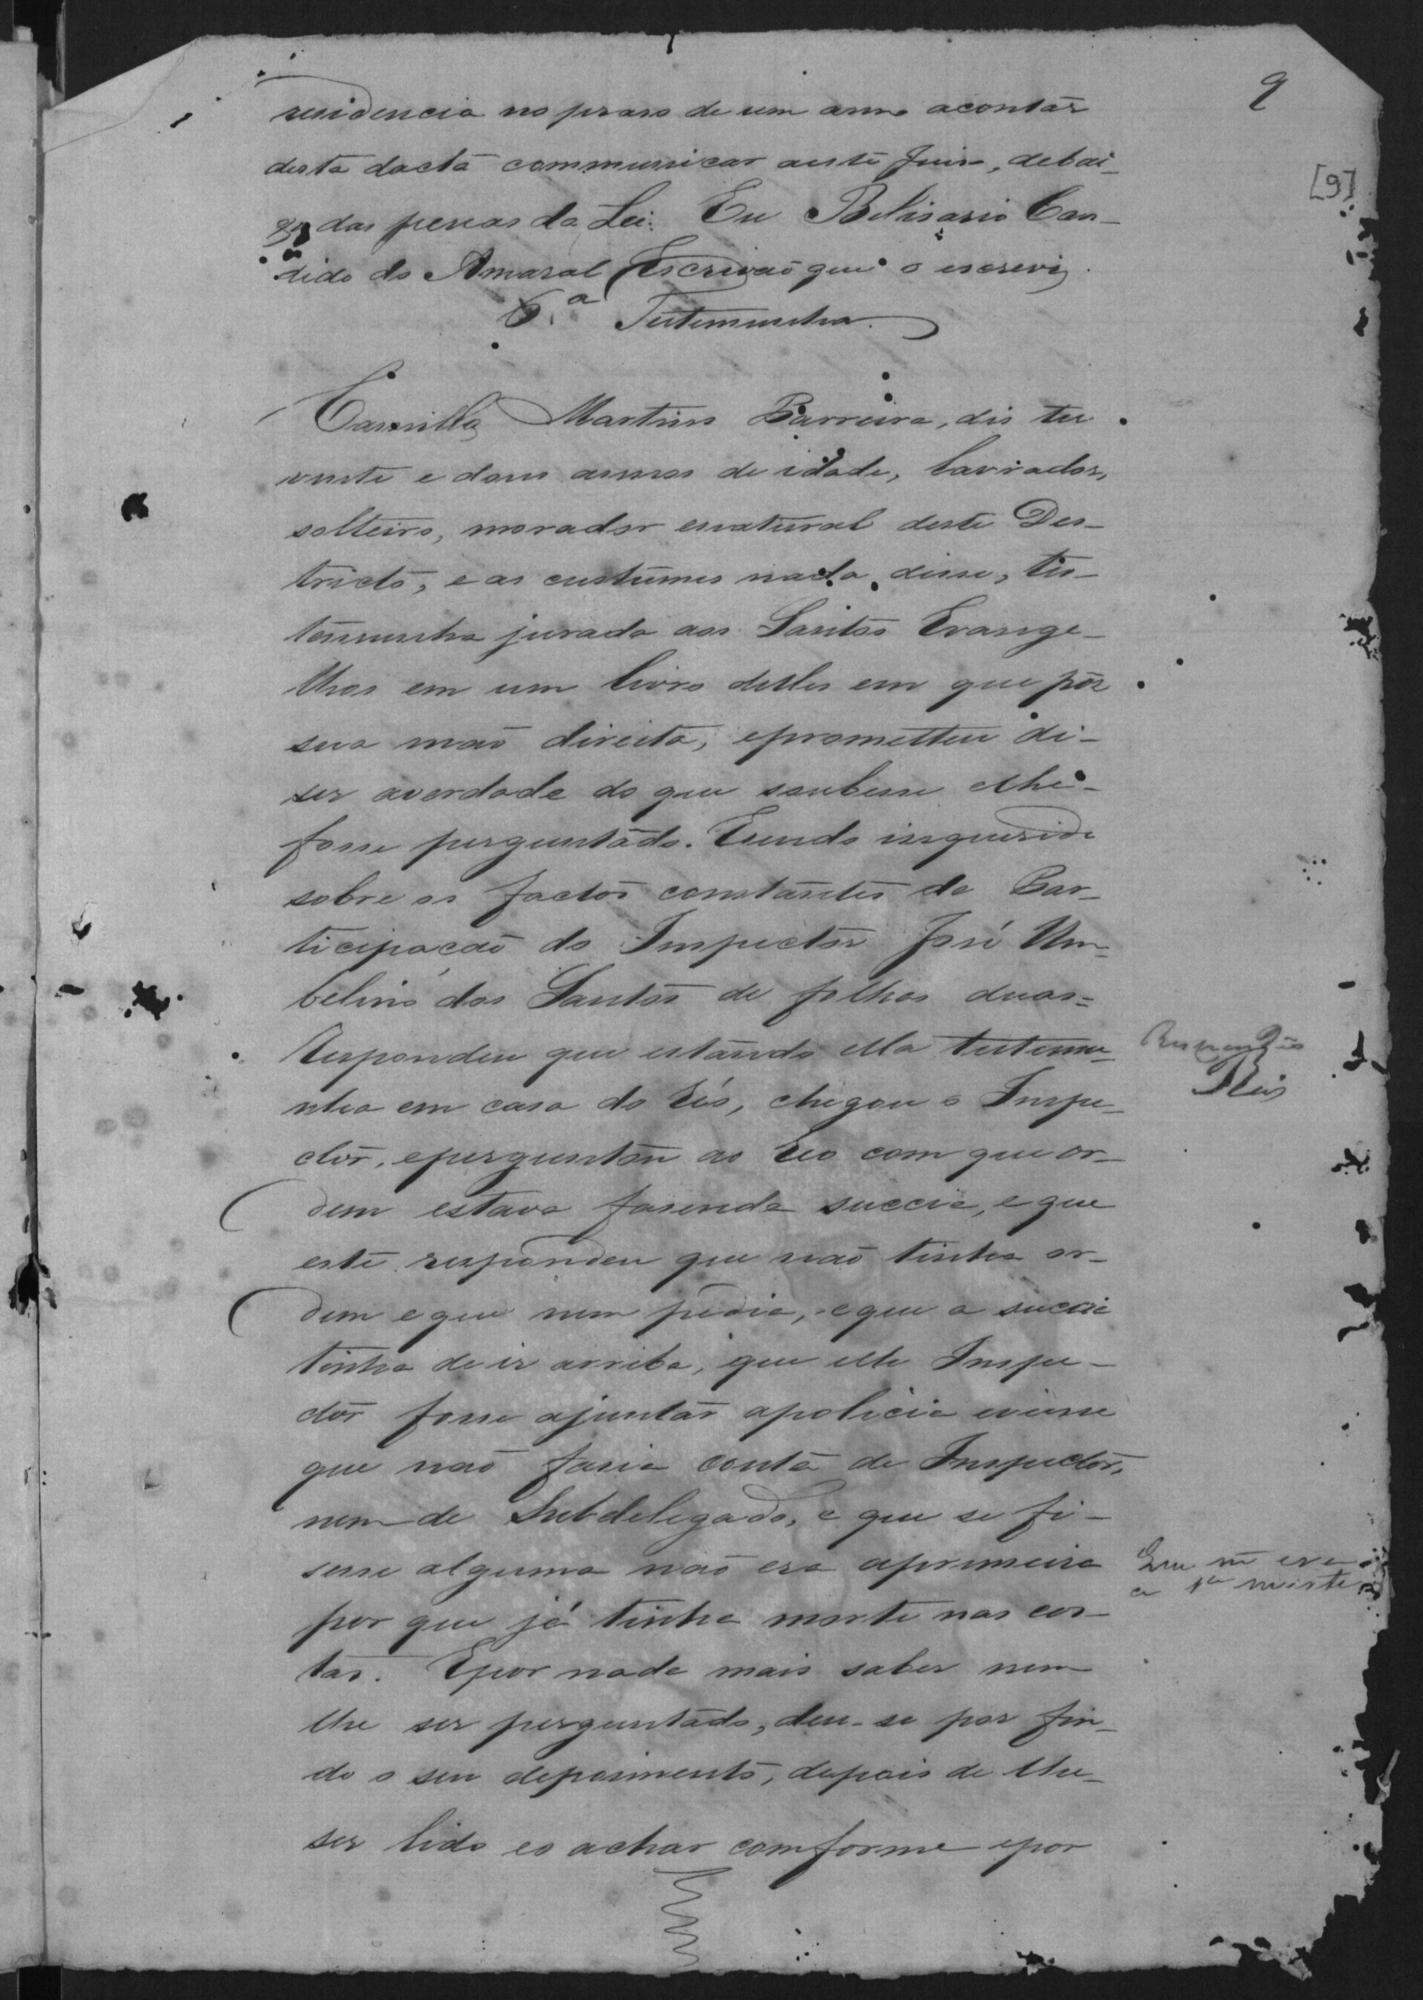 9
[9]
residencia no praso de um anno acontar
desta dacta communicar aeste Juiso, debai-
xo das penas da Lei. Eu Belisario Can-
dido do Amaral Escrivaõ que o escrevi.
6.ª Testemunha.
Camillo Martins Barreira, dis ter
vinte e dous annos de idade, lavrador,
solteiro, morador enatural deste Des-
tricto, e as custumes nada disse, tes-
temunha jurada aos Santos Evange-
lhos em um livro delles em que pôs
sua maõ direita, eprometteu di-
ser averdade do que soubesse elhe
fosse perguntado. Esendo inquerido
sobre os factos constantes da Par-
ticipacaõ do Inspector José Um-
belino dos Santos de folhas duas=
Respondeu que estando ella testemu-
nha em casa do Réo, chegou o Inspe-
ctor, eperguntou ao Reo com que or-
dem estava fasendo succia, e que
este respondeu que naõ tinha or-
dem eque nem pedia, eque a succia
tinha de ir arriba, que elle Inspe-
ctor fosse ajuntar apolicia eviesse
que naõ fasia conta de Inspector,
nem de Subdelegado, e que se fi-
sesse alguma naõ era aprimeira
por que já tinha morte nas cos-
tas. Epor nada mais saber nem
lhe ser perguntado, deu-se por fin-
do o seu depoimento, depois de lhe
ser lido eo achar comforme epor
Reis
Que ñ era
a 1ª